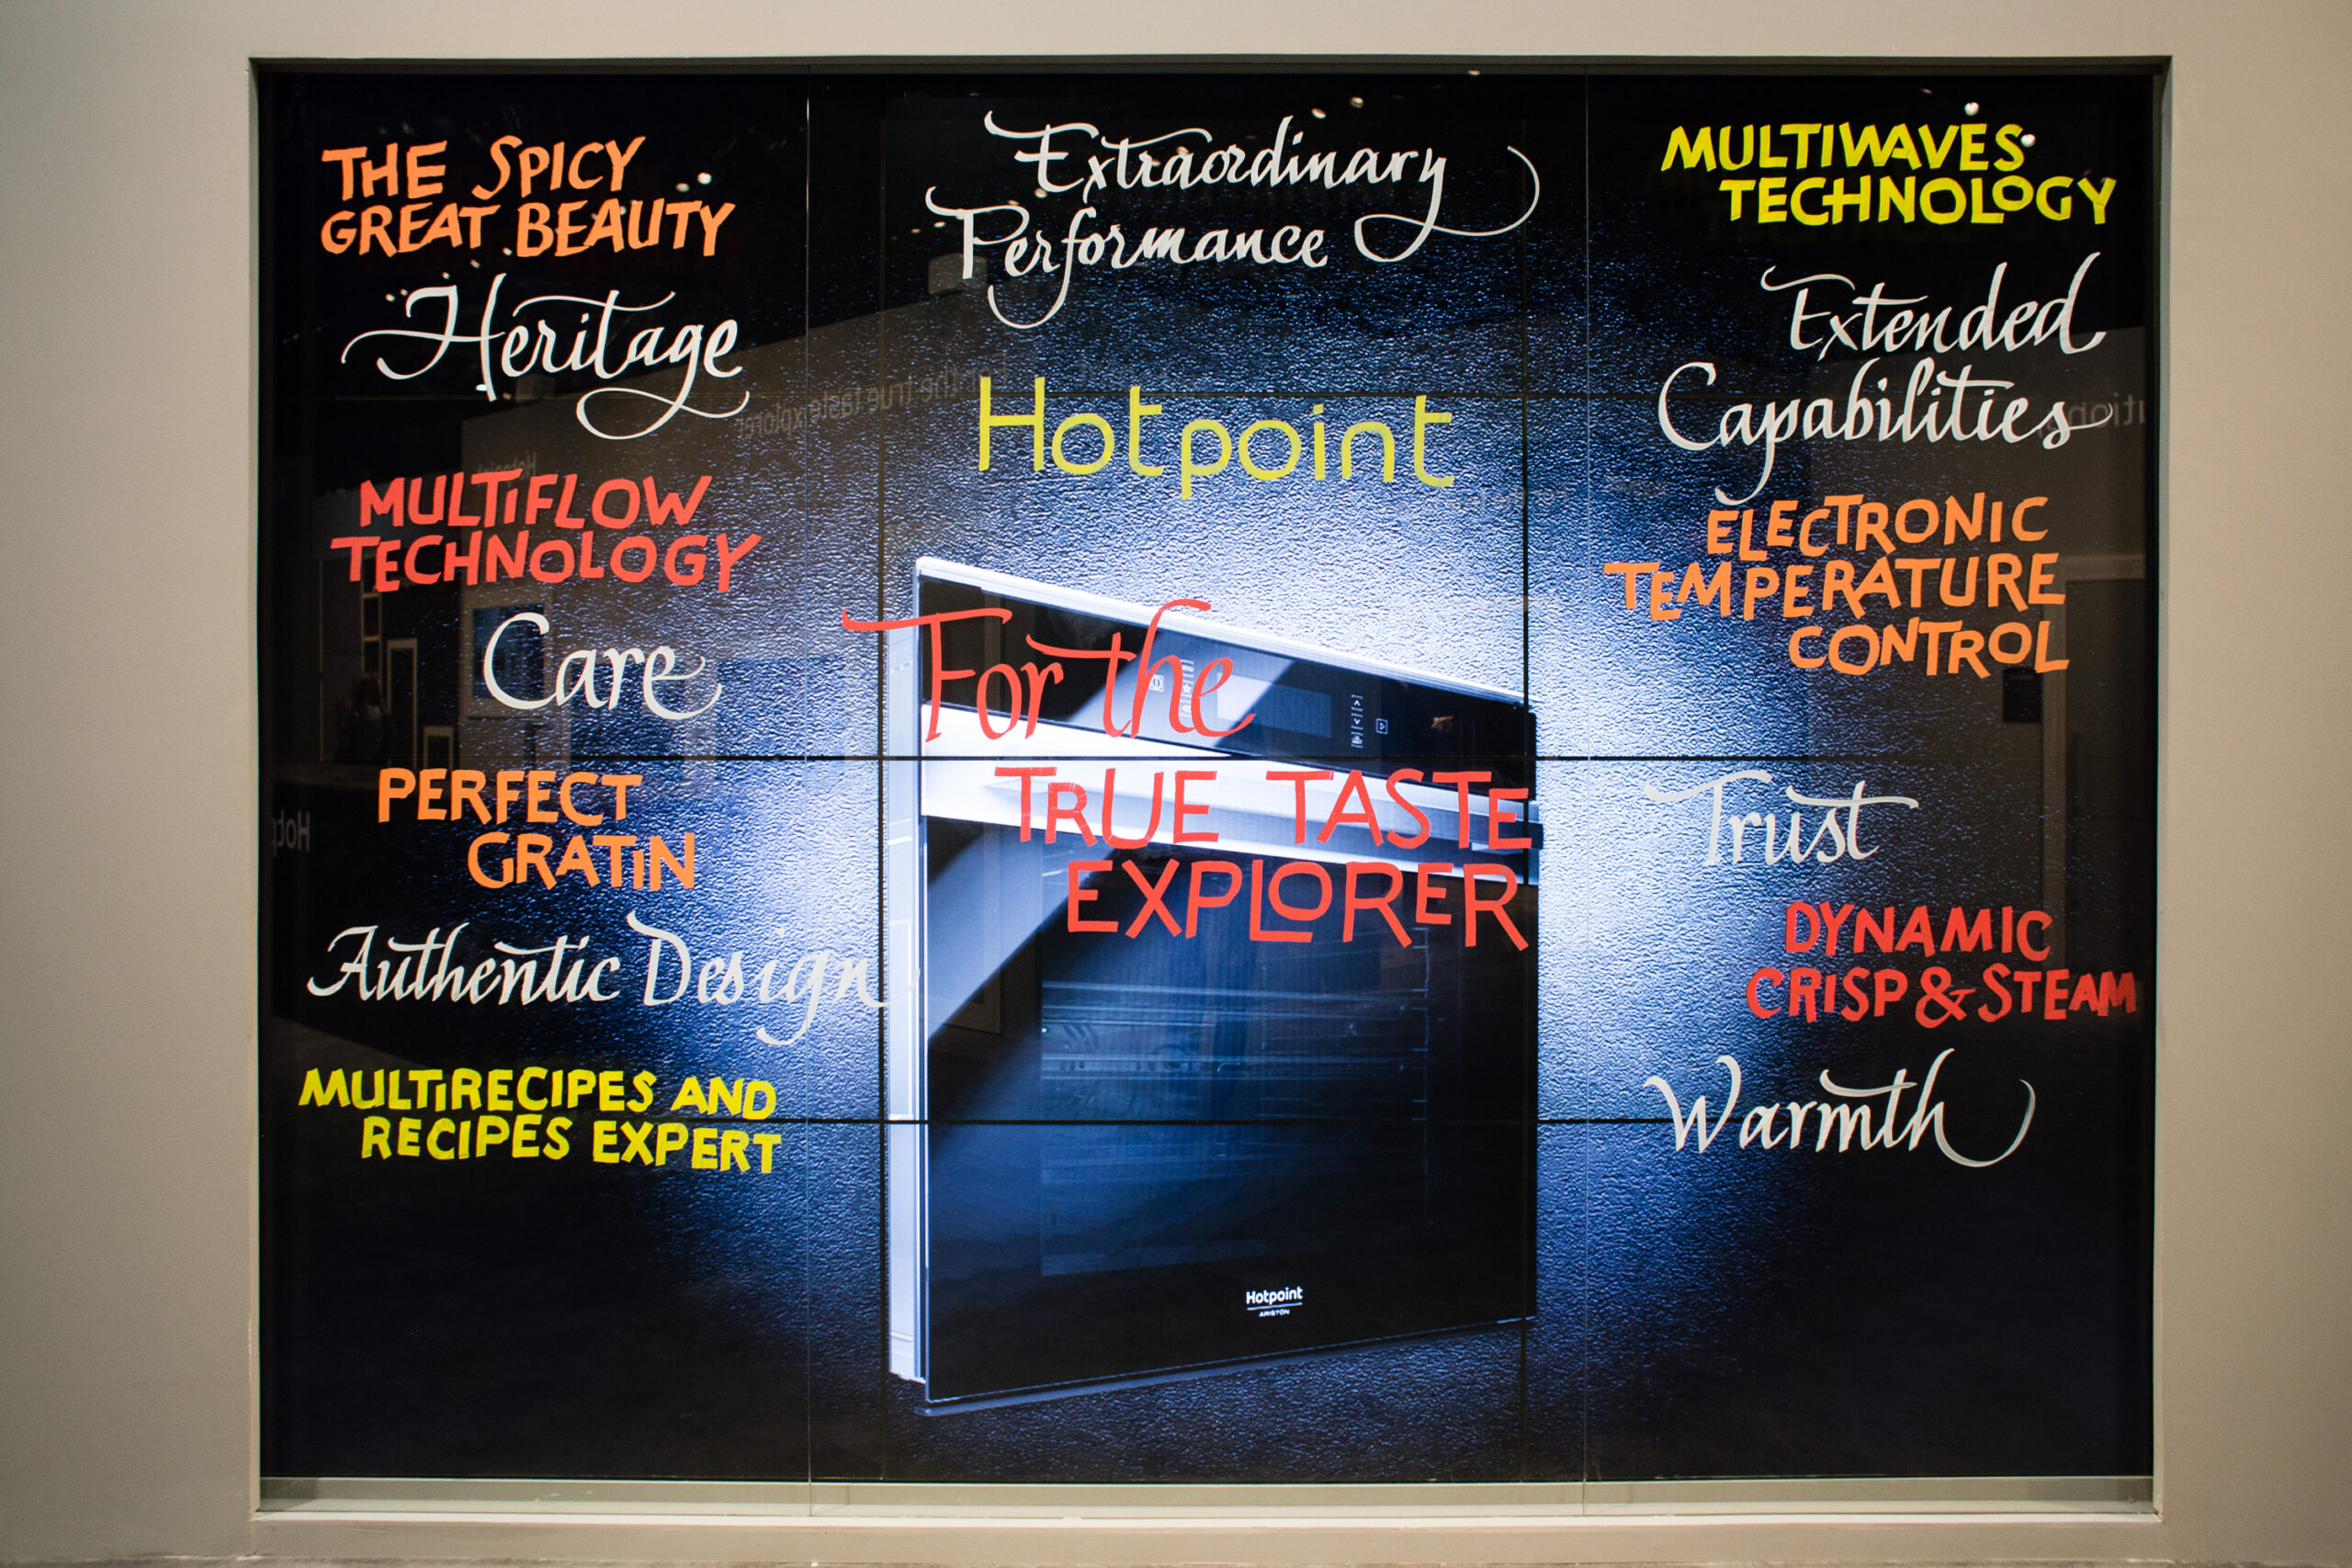 THE SPICY
GREAT BEAUTY
Heritage
MULTIFLOW
TECHNOLOGY
Care
PERFECT
GRATIN
Authentic Design
MULTIRECIPES AND
RECIPES EXPERT
Extraordinary
Performance
Hotpoint
For the
TRUE TASTE
EXPLORER
Hotpoint
ARISTON
MULTIWAVES
TECHNOLOGY
Extended
Capabilities
ELECTRONIC
TEMPERATURE
CONTROL
Trust
DYNAMIC
CRISP & STEAM
Warmth
for the true taste explorer
Hotpoint